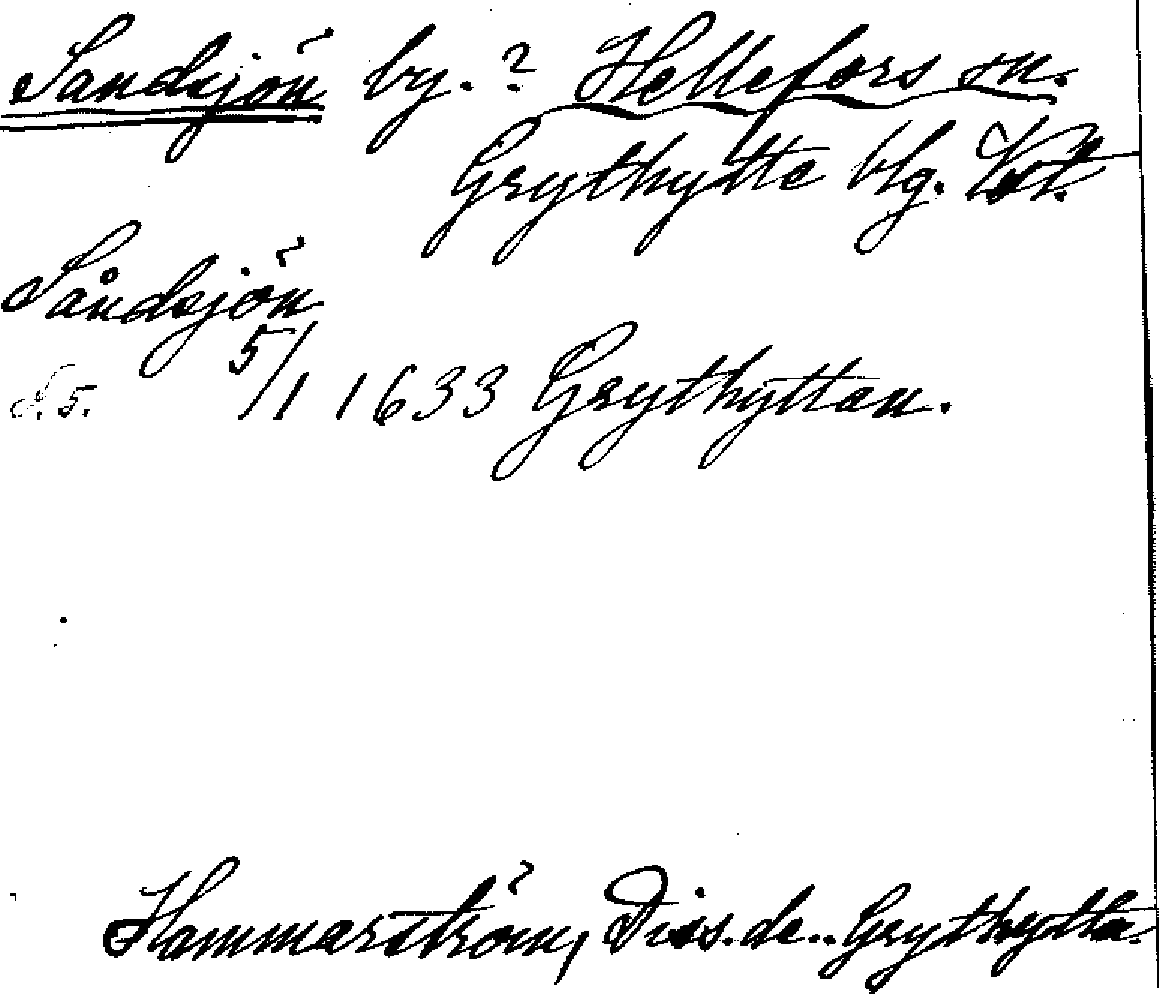 Sandsjön by.? Hellefors sn.
Grythytte blg. Vstm.
Såndsjön
S. 5. 5/1 1633 Grythyttan.
Hammarström, Diss. de.. Grythytta.